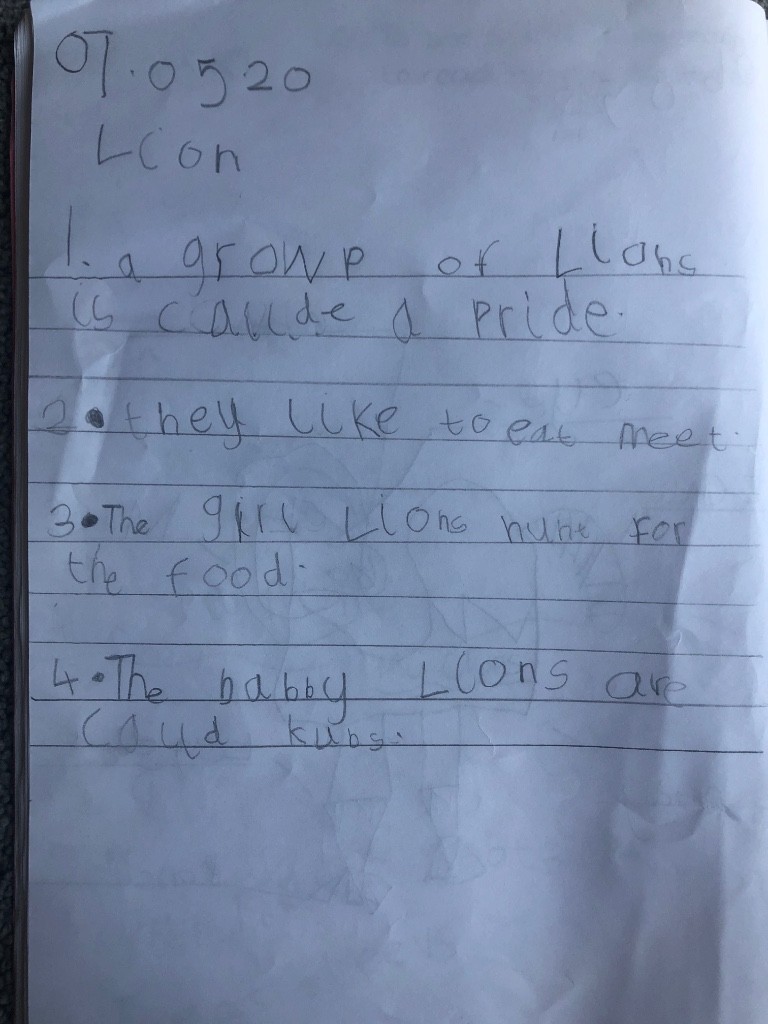 07.0520
Lion
1. a growp of Lions
is caullde a pride.
2. they like to eat meet.
3. The girl Lions hunt for
the food.
4. The babby Lions are
Caud kubs.